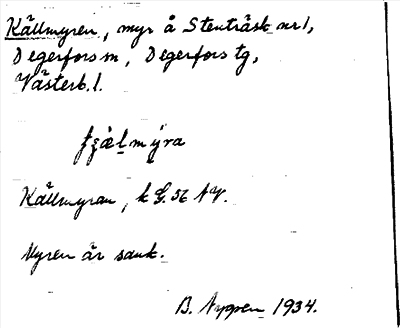 Källmyren, myr å Stenträsk nr 1,
Degerfors sn, Degerfors tg,
Västerb. l.
Källmyran, k G. 56 NV.
Myren är sank.
B. Nygren 1934.